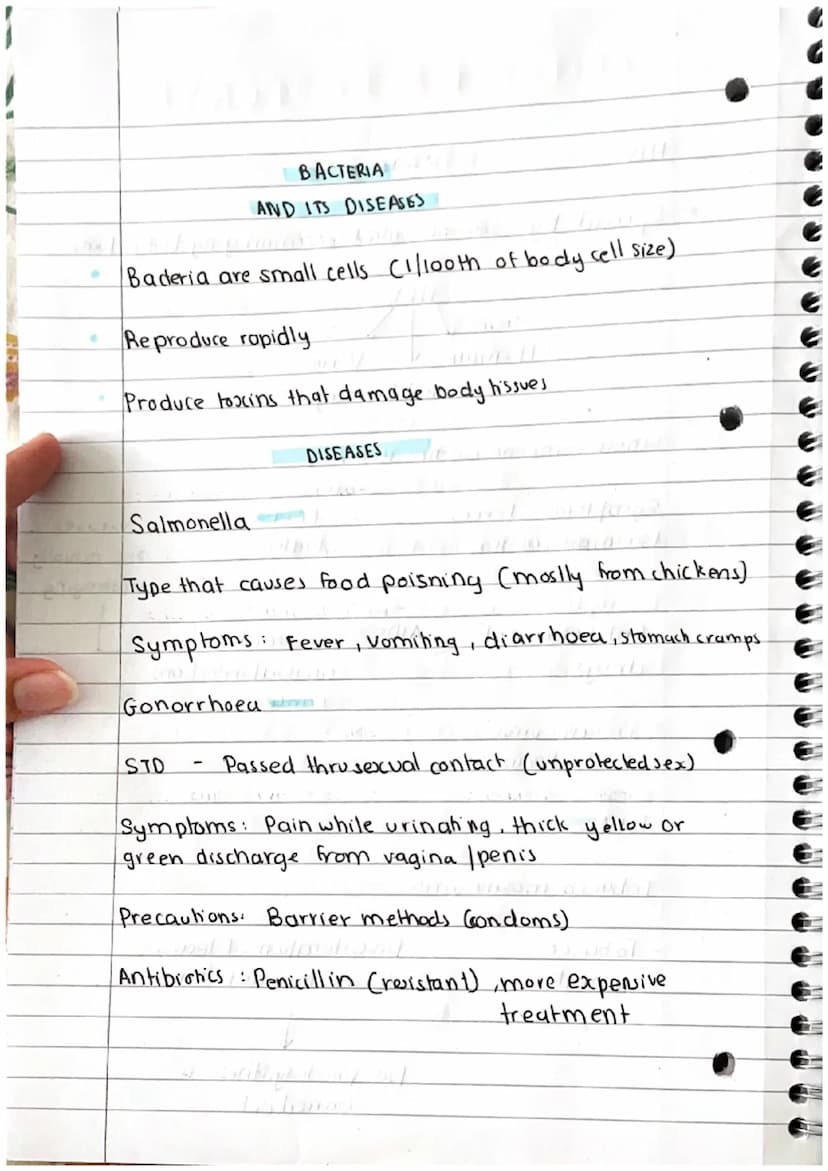 BACTERIA
AND ITS DISEASES
Bacteria are small cells (1/100th of body cell size)
Reproduce rapidly
Produce toxins that damage body tissues
DISEASES
Salmonella
Type that causes food poisning (mostly from chickens)
Symptoms: Fever, vomiting, diarrhoea, stomach cramps
Gonorrhoea
STD - Passed thru sexual contact (unprotected sex)
Symptoms: Pain while urinating, thick yellow or
green discharge from vagina/penis
Precautions: Barrier methods (condoms)
Antibiotics: Penicillin (resistant), more expensive
treatment